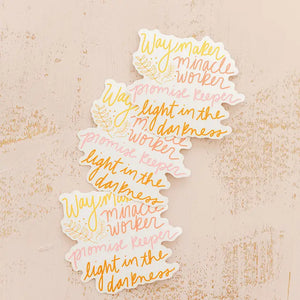 Way maker
miracle
worker
promise keeper
light in the
darkness
Way
mi
worker
promise keeper
light in the
darkness
Way mak
miracle
worker
promise keeper
light in the
darkness